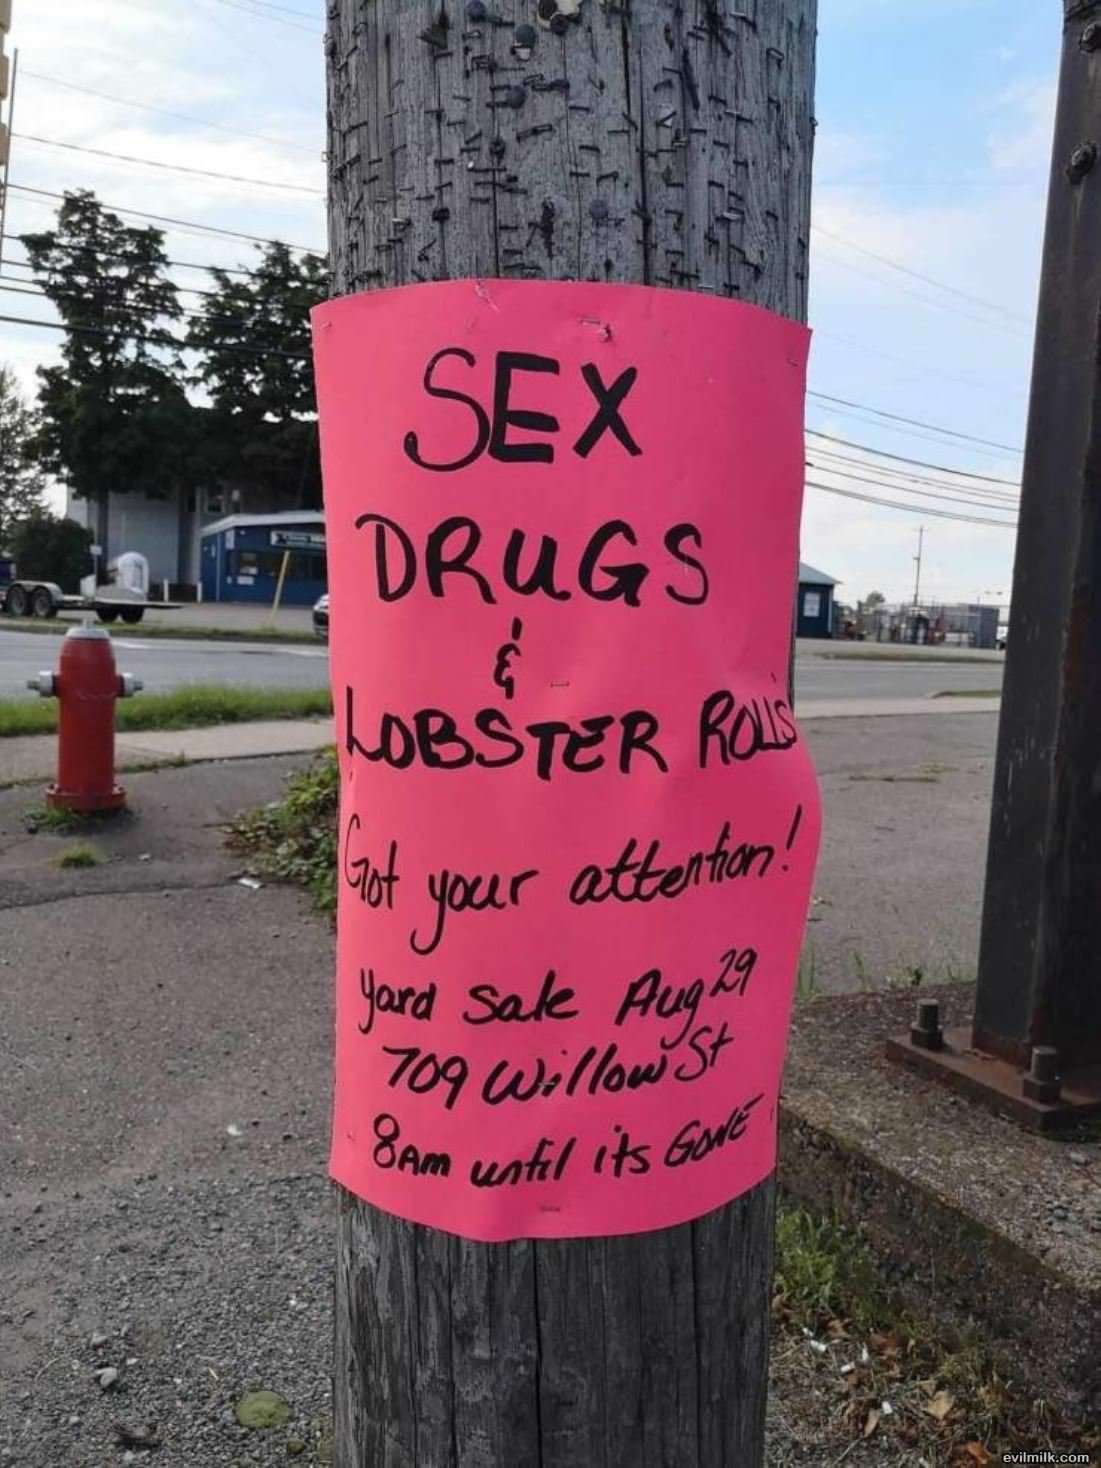 SEX
DRUGS
&
LOBSTER ROLLS
Got your attention!
Yard Sale Aug 29
709 Willow St
8AM until its GONE
evilmilk.com